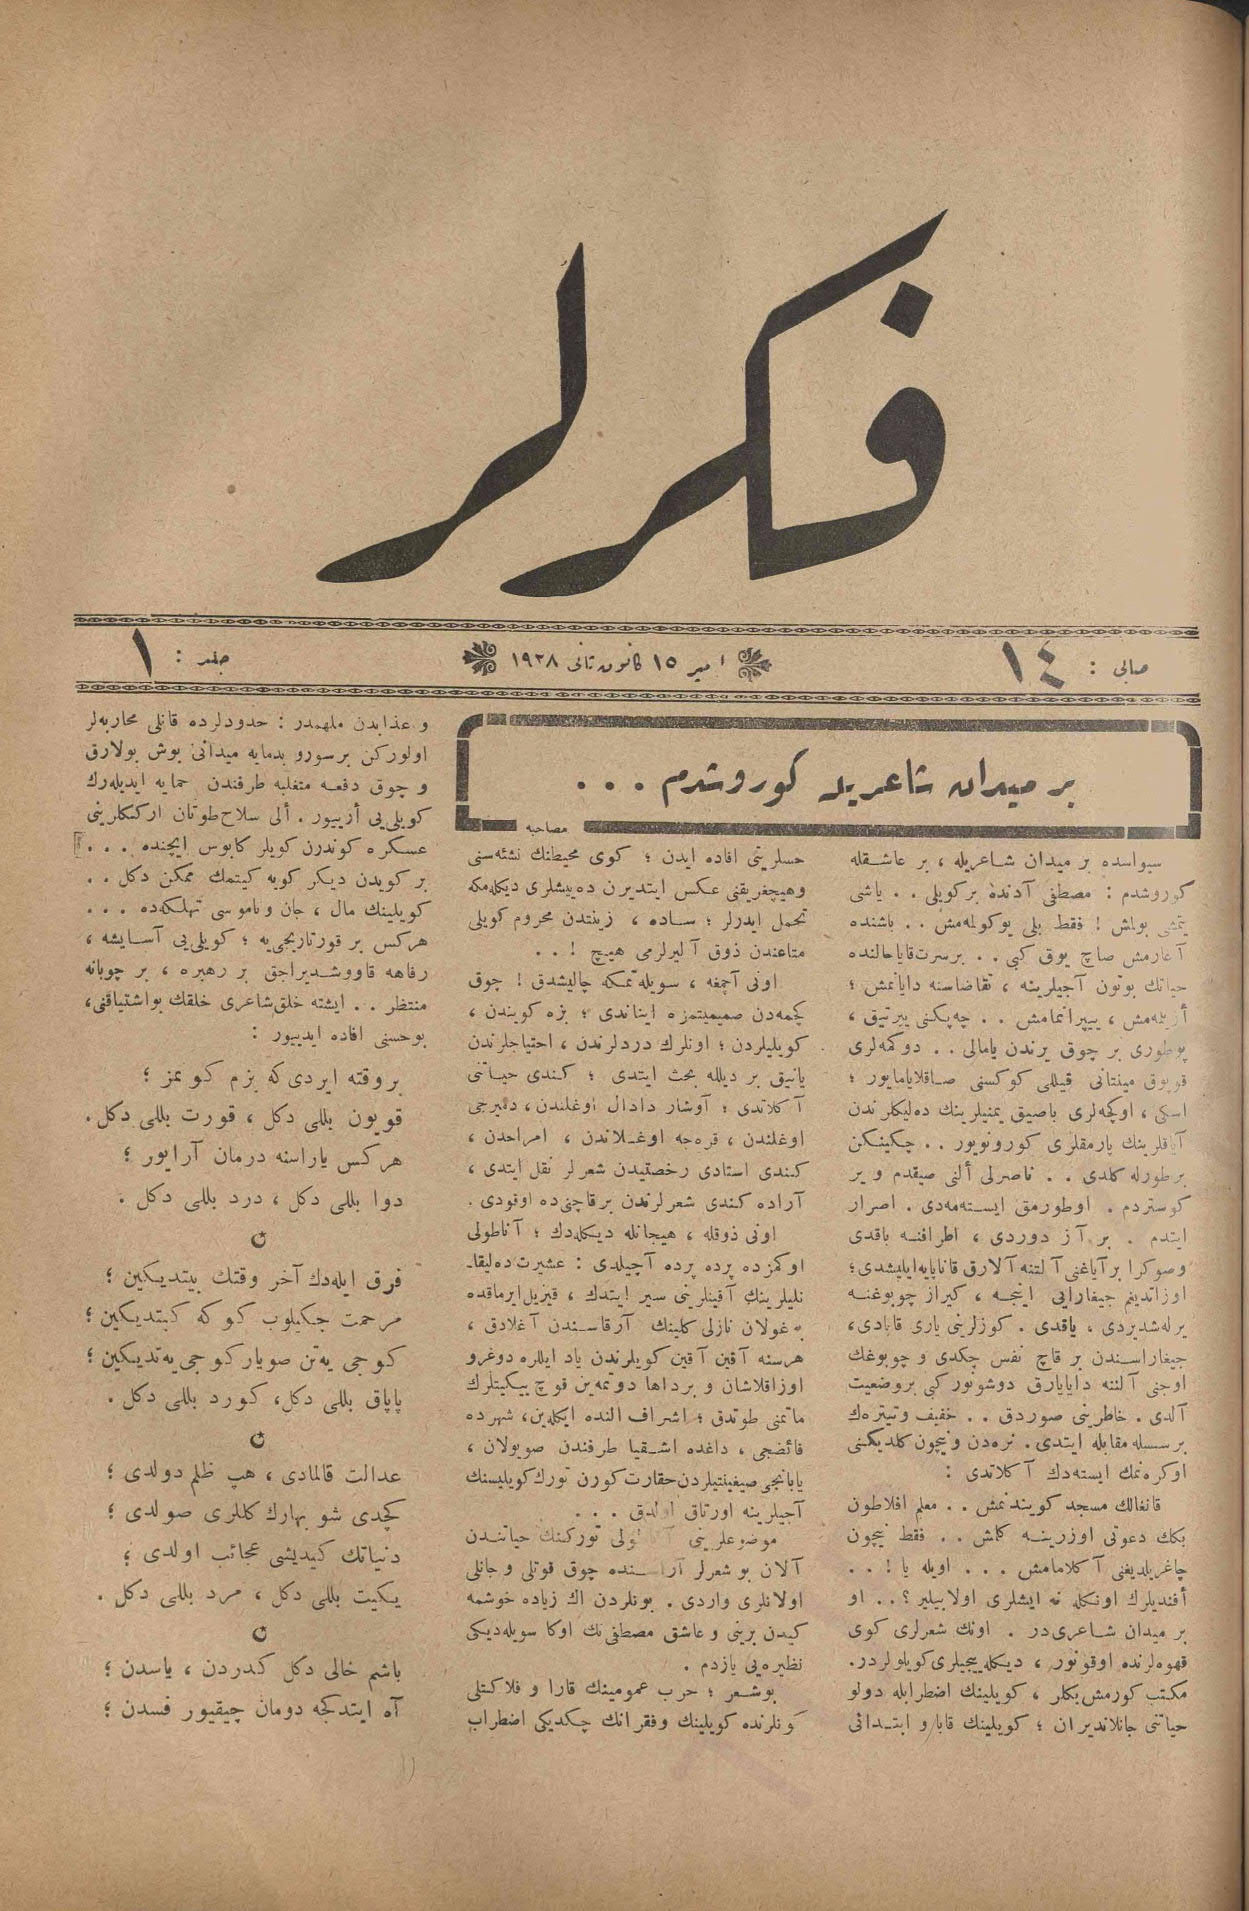 فكرلر
صایی : ١٤
ازمیر ١٥ كانون ثانی ١٩٢٨
جلد : ١
بر میدان شاعریله كوروشدم . . .
مصاحبه
سیواسده بر میدان شاعریله ، بر عاشقله
كوروشدم : مصطفی آدنده بر كویلی . . یاشی
یتمشی بولمش ! فقط بلی بوكولمه‌مش . . باشنده
آغارمش صاچ یوق كبی . . بر سرت قایا حالنده
حیاتك بوتون آجیلرینه ، تقاضاسنه دایانمش ؛
أزیله‌مش ، ییپرانمامش . . چه‌پكنی ییرتیق ،
پوطوری بر چوق یرندن یامالی . . دوكمه‌لری
قوپوق مینتانی قیللی كوكسنی صاقلایامایور ؛
اسكی ، اوكچه‌لری باصیق یمنیلرینك ده‌لیكلرندن
آیاقلرینك پارمقلری كورونویور . . چكینیكن
بر طورله كلدی . . ناصرلی ألنی صیقدم و یر
كوستردم . اوطورمق ایسته‌مه‌دی . اصرار
ایتدم . بر آز دوردی ، اطرافنه باقدی
وصوكرا بر آیاغنی آلتنه آلارق قاناپایه ایلیشدی ؛
اوزاتدیغم جیغارایی اینجه ، كیراز چوبوغنه
یرله‌شدیردی ، یاقدی . كوزلرینی یاری قاپادی ،
جیغاراسندن بر قاچ نفس چكدی و چوبوغك
اوجنی آلننه دایایارق دوشونور كبی بر وضعیت
آلدی . خاطرینی صوردق . . خفیف و تیتره‌ك
بر سسله مقابله ایتدی . نره‌دن و نیچون كلدیكنی
اوكره‌نمك ایسته‌دك آكلاتدی :
قانغالك مسجد كویندنمش . . معلم افلاطون
بكك دعوتی اوزرینه كلمش . . فقط نیچون
چاغریلدیغنی آكلامامش . . . اویله یا ! . .
أفندیلرك اونكله نه ایشلری اولابیلیر ؟ . . او
بر میدان شاعری‌در . اونك شعرلری كوی
قهوه‌لرنده اوقونور ، دیكله‌ییجیلری كویلولردر .
مكتب كورمش بكلر ، كویلینك اضطرابله دولو
حیاتنی جانلاندیران ؛ كویلینك قابا و ابتدائی
حسلریتی افاده ایدن ؛ كوی محیطنك نشئه‌سنی
وهیچغریقنی عكس ایتدیرن ده‌ییشلری دیكله‌مكه
تحمل ایدرلر ؛ ساده ، زینتدن محروم كویلی
متاعندن ذوق آلیرلرمی هیچ ! . .
اونی آچمغه ، سویله‌تمكه چالیشدق ! چوق
كچمه‌دن صمیمیتمزه ایناندی ؛ بزه كویندن ،
كویلیلردن ؛ اونلرك دردلرندن ، احتیاجلرندن
یانیق بر دیلله بحث ایتدی ؛ كندی حیاتنی
آكلاتدی ؛ آوشار دادال اوغلندن ، دمیرجی
اوغلندن ، قره‌جه اوغلاندن ، امراحدن ،
كندی استادی رخصتیدن شعرلر نقل ایتدی ،
آراده كندی شعرلرندن بر قاچنی ده اوقودی .
اونی ذوقله ، هیجانله دیكله‌دك ؛ آناطولی
اوكمزده پرده پرده آچیلدی : عشیرت ده‌لیقا-
نلیلرینك آقینلرینی سیر ایتدك ، قیزیل ایرماقده
بوغولان نازلی كلینك آرقاسندن آغلادق ،
هرسنه آقین آقین كویلرندن یاد ایللره دوغرو
اوزاقلاشان و بر داها دونمه‌ین قوچ ییكیتلرك
ماتمنی طوتدق ؛ اشراف النده ایكله‌ین ، شهرده
فائضجی ، داغده اشقیا طرفندن صویولان ،
یابانجی صیغینتیلردن حقارت كورن تورك كویلیسنك
آجیلرینه اورتاق اولدق . . .
موضوعلرینی آناطولی توركنك حیاتندن
آلان بو شعرلر آراسنده چوق قوتلی و جانلی
اولانلری واردی . بونلردن اك زیاده خوشمه
كیدن برینی و عاشق مصطفی‌نك اوكا سویله‌دیكی
نظیره‌یی یازدم .
بو شعر ؛ حرب عمومینك قارا و فلاكتلی
كونلرنده كویلینك و فقرانك چكدیكی اضطراب
و عذابدن ملهمدر : حدودلرده قانلی محاربه‌لر
اولوركن بر سورو بدمایه میدانی بوش بولارق
و چوق دفعه متغلبه طرفندن حمایه ایدیله‌رك
كویلی‌یی أزییور . ألی سلاح طوتان ارككلرینی
عسكره كوندرن كویلر كابوس ایچنده . . .
بر كویدن دیكر كویه كیتمك ممكن دكل . .
كویلینك مال ، جان و ناموسی تهلكه‌ده . . .
هركس بر قورتاریجی‌یه ؛ كویلی‌یی آسایشه ،
رفاهه قاووشدیراجق بر رهبره ، بر چوبانه
منتظر . . ایشته خلق شاعری خلقك بو اشتیاقنی ،
بو حسنی افاده ایدییور :
بر وقته ایردی كه بزم كونمز ؛
قویون بللی دكل ، قورت بللی دكل .
هركس یاراسنه درمان آرایور ؛
دوا بللی دكل ، درد بللی دكل .
فرق ایله‌دك آخر وقتك بیتدیكین ؛
مرحمت چكیلوب كوكه كیتدیكین ؛
كوجی یه‌تن صویار كوجی یه‌تدیكین ؛
پاپاق بللی دكل ، كورد بللی دكل .
عدالت قالمادی ، هپ ظلم دولدی ؛
كچدی شو بهارك كللری صولدی ؛
دنیاتك كیدیشی عجائب اولدی ؛
ییكیت بللی دكل ، مرد بللی دكل .
باشم خالی دكل كدردن ، یاسدن ؛
آه ایتدكجه دومان چیقیور فسدن ؛